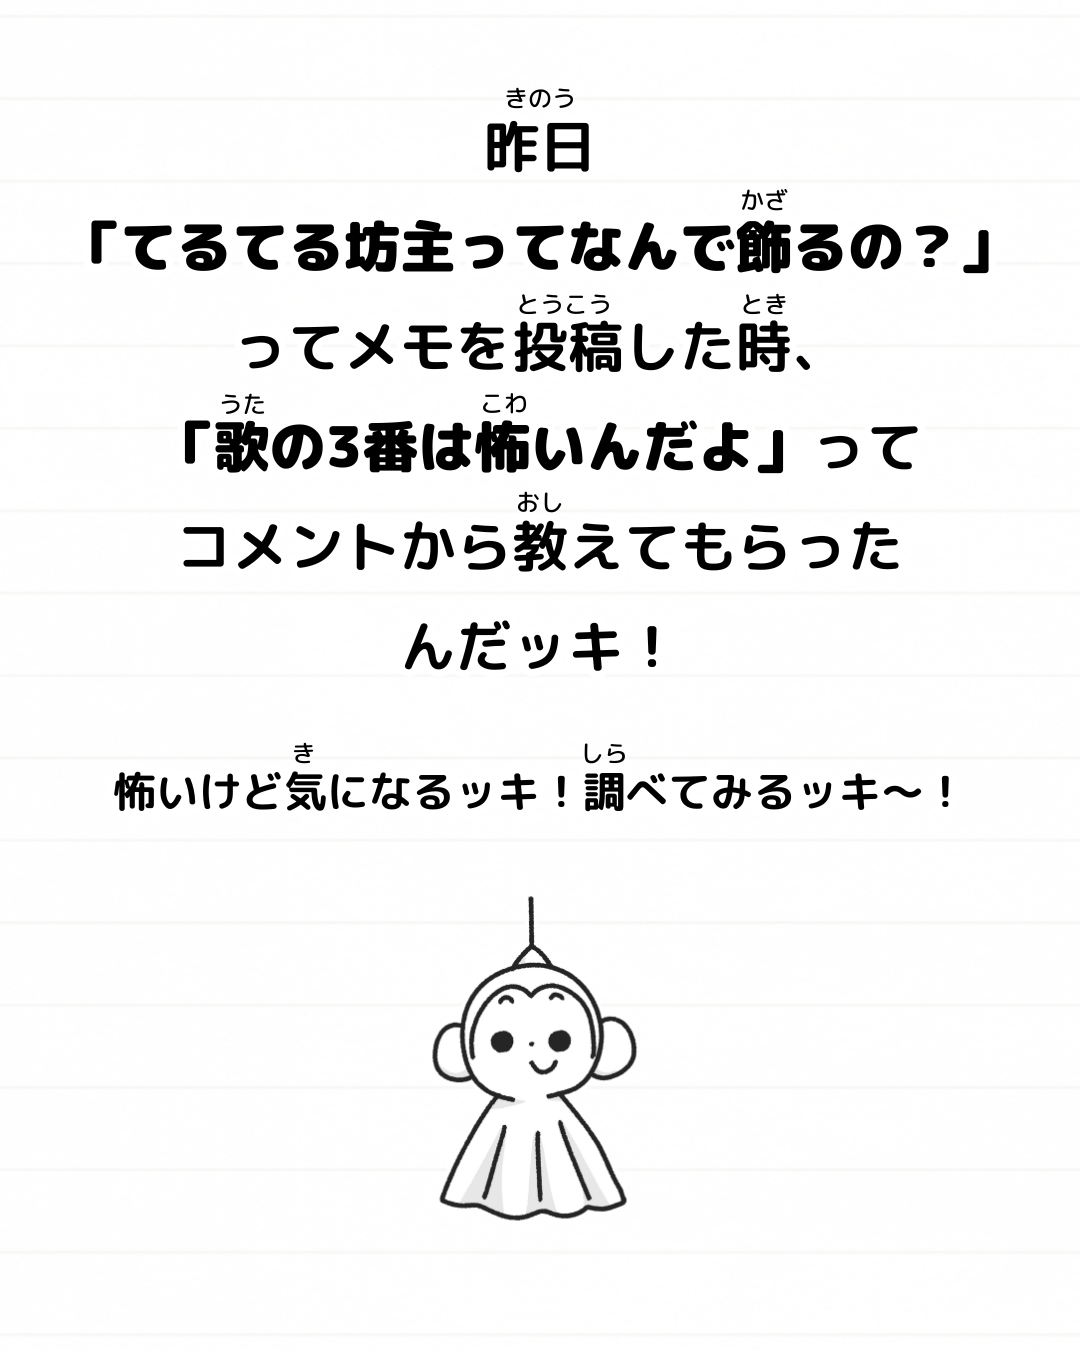 きのう
昨日
かざ
「てるてる坊主ってなんで飾るの？」
とうこう とき
ってメモを投稿した時、
うた こわ
「歌の3番は怖いんだよ」って
おし
コメントから教えてもらった
んだッキ！
き しら
怖いけど気になるッキ！調べてみるッキ〜！